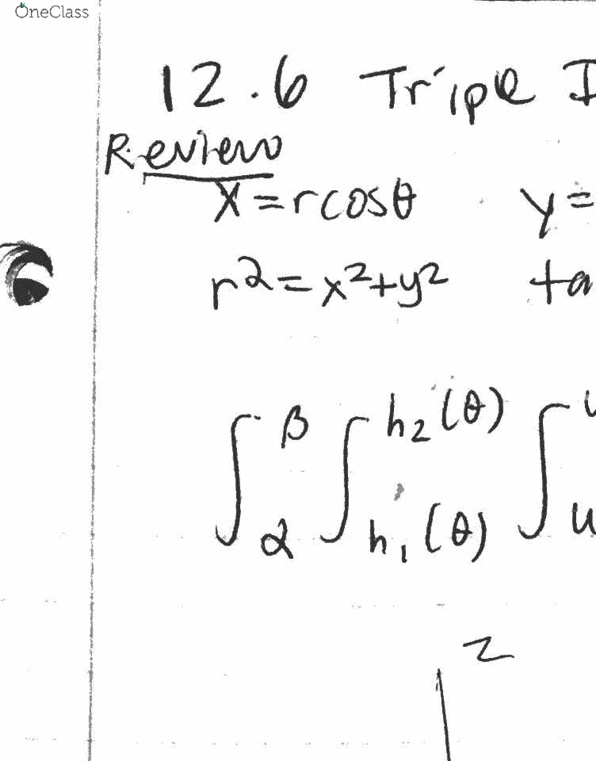 OneClass
12.6 Triple I
Review
x=rcosθ y=
r²=x²+y² ta
∫ᵦ...